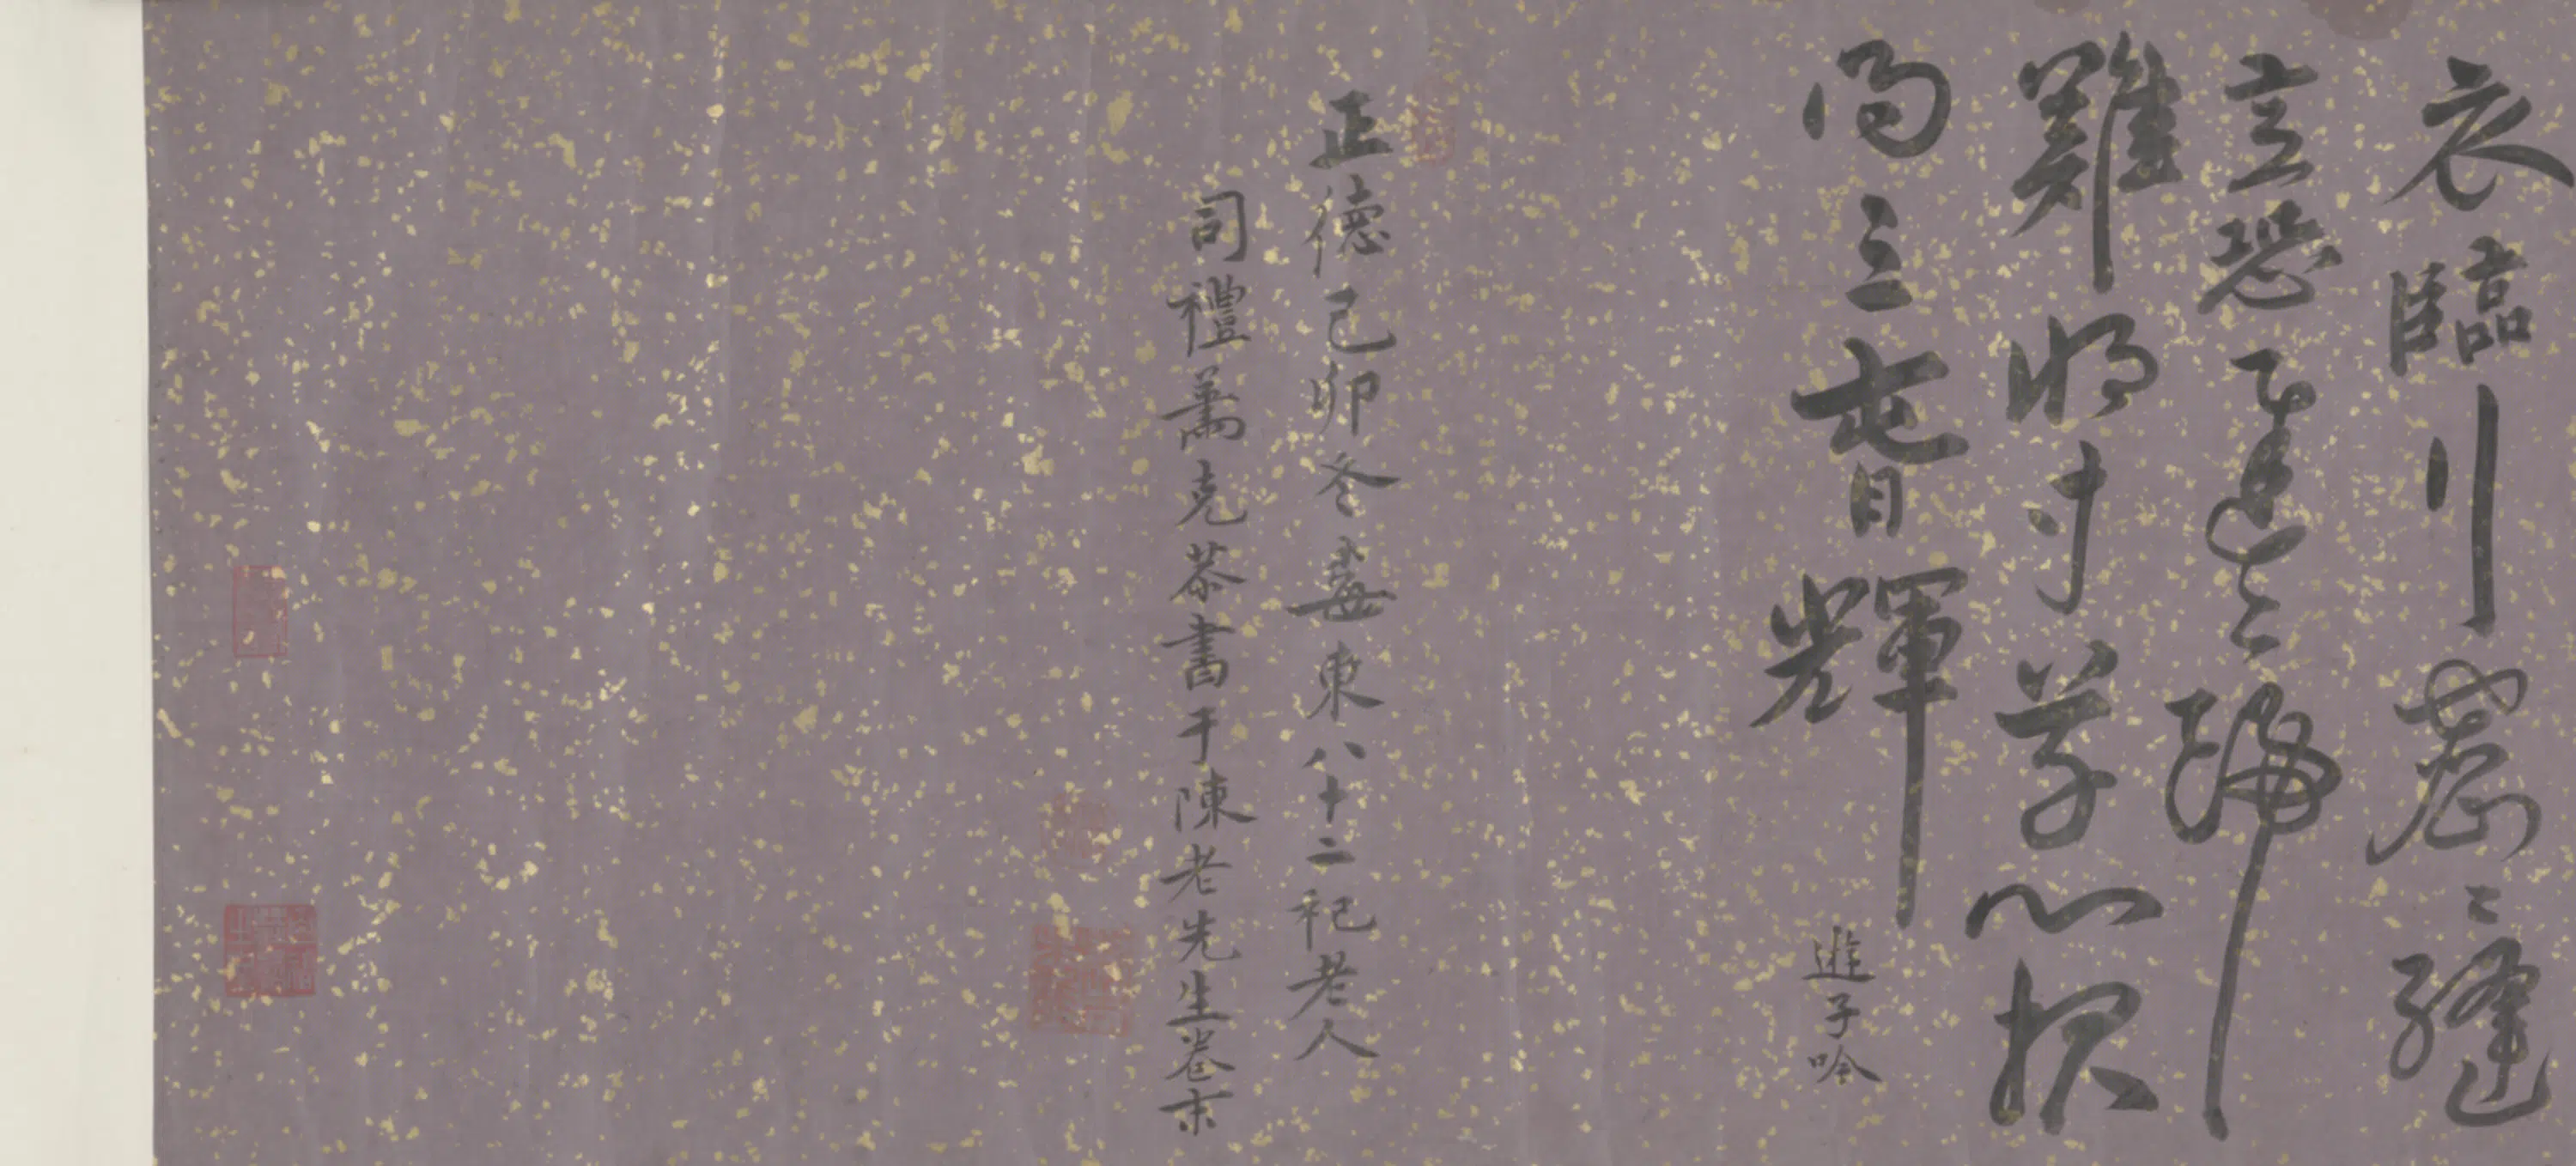 衣臨行密〻縫
意恐遲〻歸
難將寸草心報
得三春輝
遊子吟
正德己卯冬東八十二祀老人
司禮蕭克恭書于陳老先生卷末